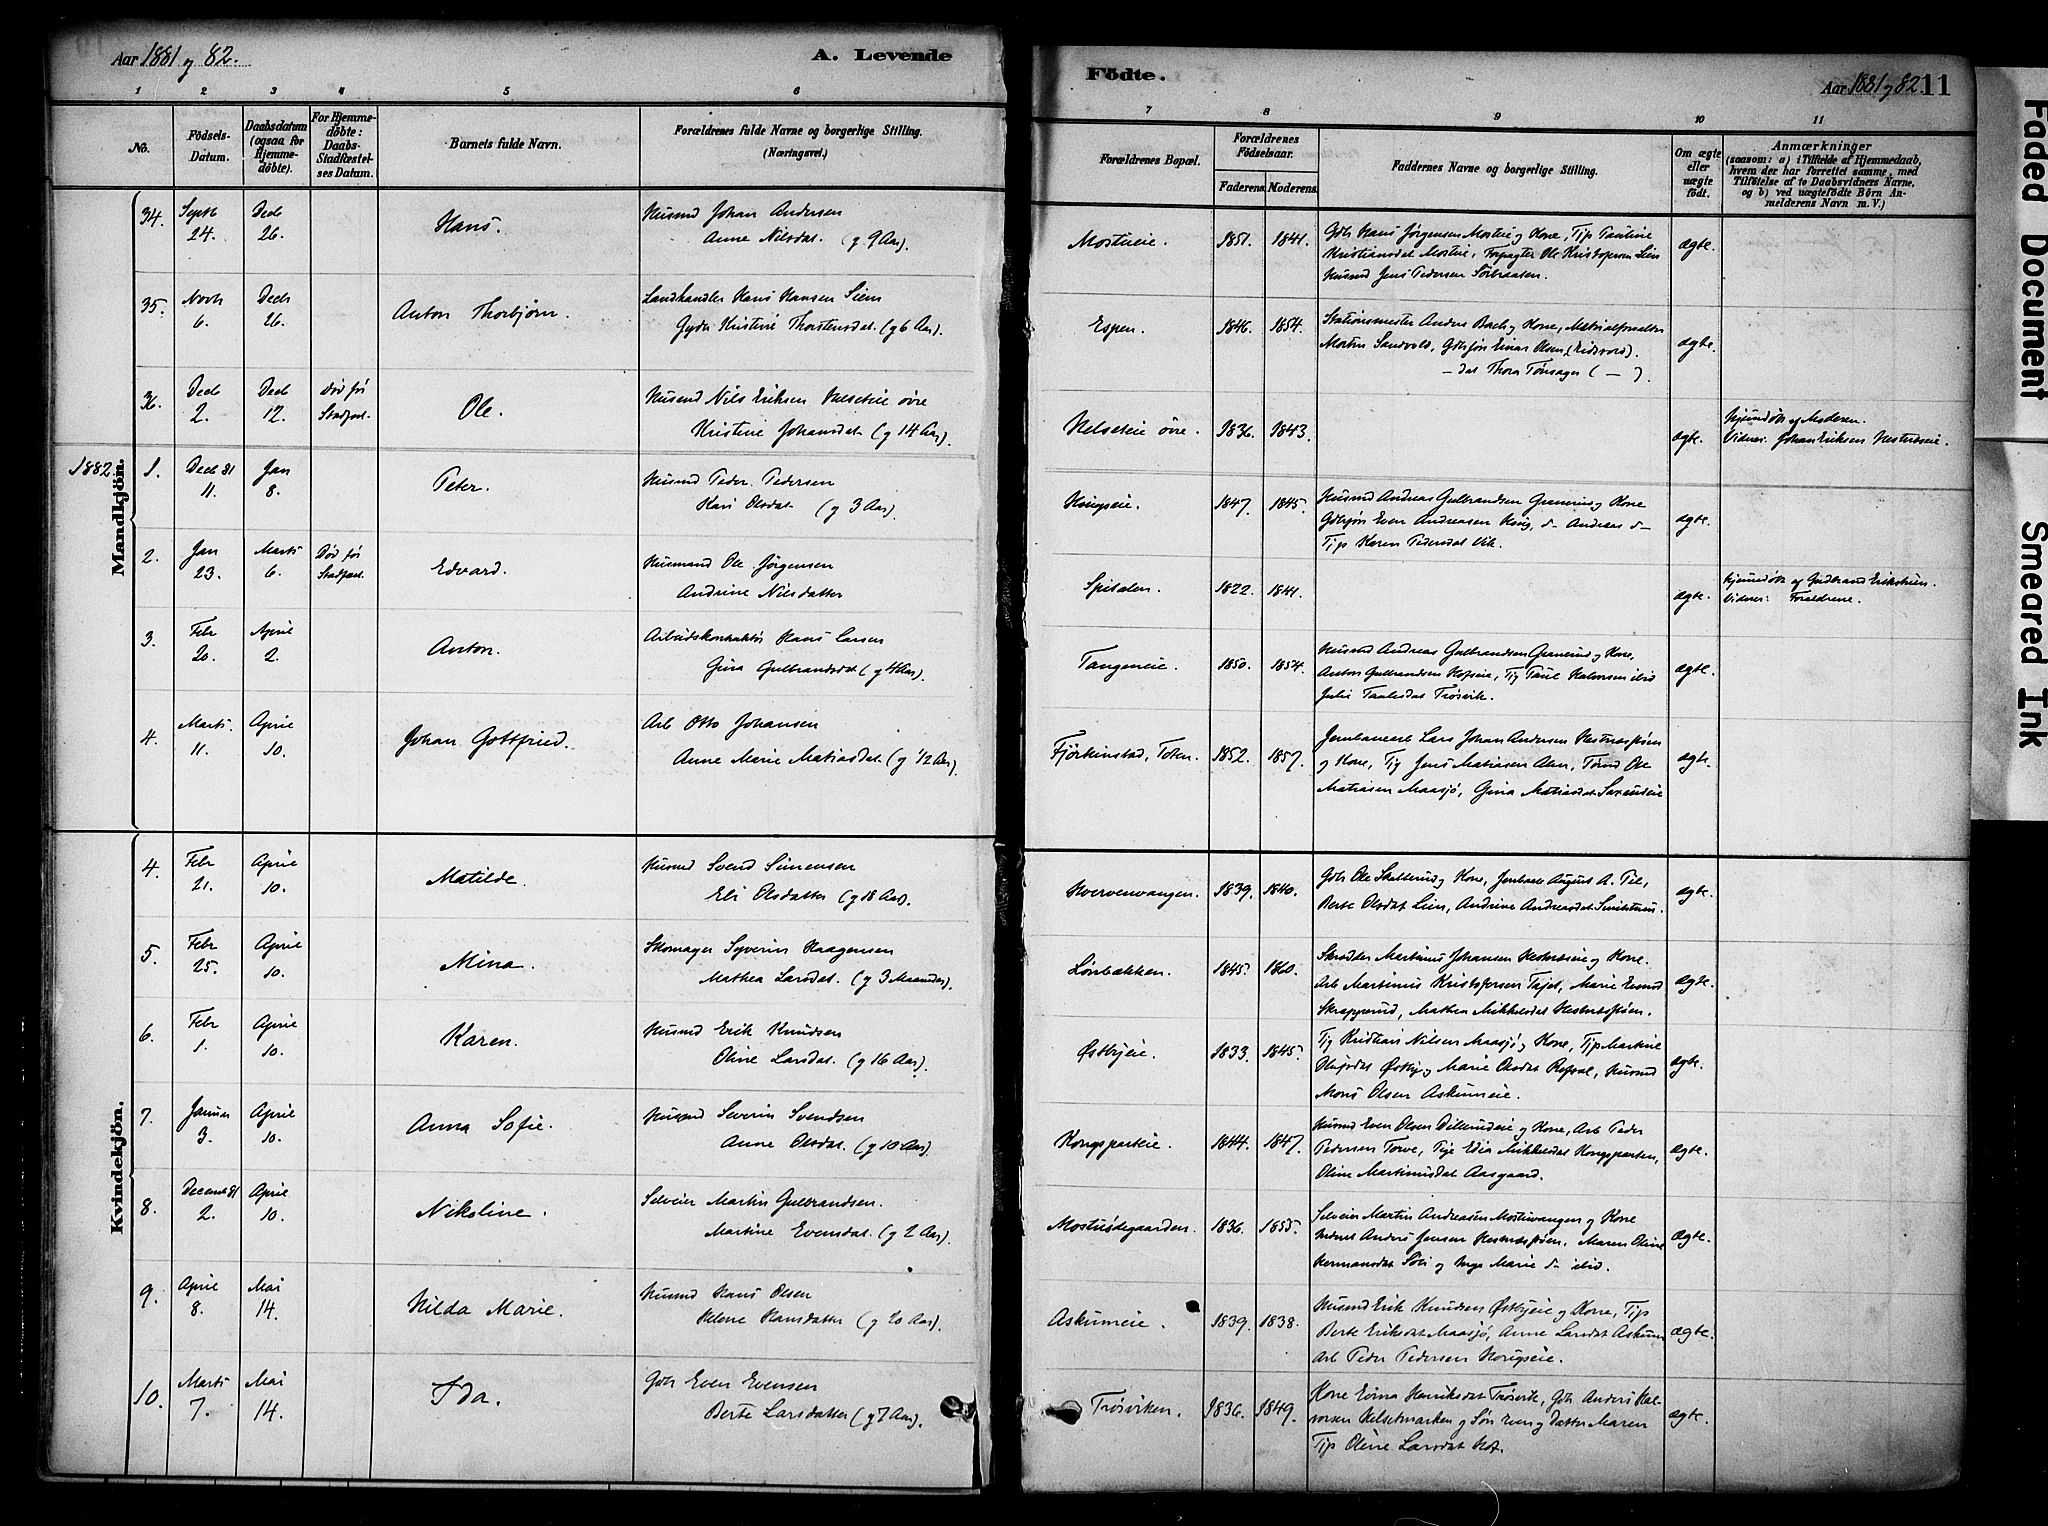 Aar 1881 og 82.
A. Levende
1 2 3 4 5 6
No.
Födsels-Datum.
Daabsdatum (ogsaa for Hjemmedöbte).
For Hjemmedöbte: Daabs-Stadfæstelses Datum.
Barnets fulde Navn.
Forældrenes fulde Navne og borgerlige Stilling. (Næringsvei.)
34. Septb 24. Decb 26. Hans. Husmd Johan Andersen
Anne Nilsdat. (g 9 Aar)
35. Novb 6. Decb 26. Anton Thorbjørn. Landhandler Hans Hansen Siem
Gyda Kristine Thorstensdat. (g 6 Aar)
36. Decb 2. Decb 12. Død før Stadfæst. Ole. Husmd Nils Eriksen Helseteie øvre
Kristine Johansdat (g 14 Aar).
1882
Mandkjön.
1. Decb 81 11. Jan 8. Peter. Husmd Peder Pedersen
Kari Olsdat. (g 3 Aar)
2. Jan 23. Marts 6. Død før Stadfæst. Edvard. Husmand Ole Jørgensen
Andrine Nilsdatter
3. Febr 20. April 2. Anton. Arbeidskontraktør Hans Larsen
Gina Gulbrandsdat (g 4 Aar)
4. Marts 11. April 10. Johan Gottfried. Arb Otto Johansen
Anne Marie Matiasdat (g 1/2 Aar).
Kvindekjön.
4. Febr 21. April 10. Matilde. Husmd Svend Simensen
Eli Olsdatter (g 18 Aar).
5. Febr 25. April 10. Mina. Skomager Syverin Haagensen
Mathea Larsdat. (g 3 Maaneder)
6. Febr 1. April 10. Karen. Husmd Erik Knudsen
Oline Larsdat (g 16 Aar)
7. Januar 3. April 10. Anna Sofie. Husmd Severin Svendsen
Anne Olsdat. (g 10 Aar)
8. Decemb 81 2. April 10. Nikoline. Selveier Martin Gulbrandsen.
Martine Evensdat. (g 2 Aar)
9. April 8. Mai 14. Hilda Marie. Husmd Hans Olsen
Helene Hansdatter (g 20 Aar).
10. Marts 7. Mai 14. Ida. Gbr Even Evensen
Berte Larsdatter (g 7 Aar).
Födte.
Aar 1881 og 82. 11
7 8 9 10 11
Forældrenes Bopæl.
Forældrenes Födselsaar.
Faderens. Moderens.
Faddernes Navne og borgerlige Stilling.
Om ægte eller uægte födt.
Anmærkninger
(saasom: a) i Tilfælde af Hjemmedaab, hvem der har forrettet samme, med Tilföielse af to Daabsvidners Navne, og b) ved uægtefödte Börn Anmelderens Navn m. V.)
Mostueie. 1851. 1841. Gbr Hans Jørgensen Mostue og Kone, Tip Pauline
Kristiansdat Mostue, Forpagter Ole Kristofersen Lien
Husmd Jens Pedersen Sørbraaten. ægte.
Espen. 1846. 1854. Stationsmester Anders Bach og Kone, Materialforvalter
Morten Sandvold, Gbrsøn Einar Olsen (Eidsvold).
— dat Thora Tønsager ( — ). ægte.
Helseteie øvre. 1836. 1843. ægte. Hjemdøbt af Moderen.
Vidner: Johan Eriksen Hestnæseie.
Korigseie. 1847. 1845. Husmd Andreas Gulbrandsen Granerud og Kone
Gbrsøn Even Andreasen Korig, d— Andreas d—
Tip Karen Pedersdat Vik. ægte.
Spitalen. 1822. 1841. ægte. Hjemdøbt af Gudbrand Erikstuen.
Vidner: Forældrene.
Tangeneie. 1850. 1854. Husmd Andreas Gulbrandsen Granerud og Kone,
Anton Gulbrandsen Hofseie, Tig Paul Halvorsen ibid
Julie Paulsdat Trøsvik. ægte.
Fjørkenstad, Toten. 1852. 1857. Jernbanearb Lars Johan Andersen Hestnæsføen
og Kone, Tig Jens Matiasen Alm, Tømd Ole
Matiasen Maasjø, Gina Matiasdat Saxrudeie ægte.
Kvervenvangen. 1839. 1840. Gbr Ole Skatterud og Kone, Jernbarb August A. Til,
Berte Olsdat Lien, Andrine Andreasdat Smitstuen. ægte.
Lønbækken. 1845. 1860. Skrædder Martinus Johansen Hestnæseie og Kone.
Arb Martinus Kristofersen Tajet, Marie Evensd
Skrapperud, Mathea Mikkelsdat Hestnæsføen. ægte.
Østbyeie. 1833. 1845. Tig Kristian Nilsen Maasjø og Kone, Tip Martine
Østby og Marie Olsdat Refsal, Husmd
Mons Olsen Askumeie. ægte.
Kongsparteie. 1844. 1847. Husmd Even Olsen Dillerudeie og Kone, Arb Peder
Pedersen Torve, Pige Edia Mikkelsdat Kongsparten,
Oline Martinusdat Aasgaard. ægte.
Mostuødegaarden. 1836. 1855. Selveier Martin Andreasen Mostuvangen og Kone
Anders Jensen Hestnæsføen, Maren Oline
Hermansdat Søli og Inge Marie d— ibid. ægte.
Askumeie. 1839. 1838. Husmd Erik Knudsen Østbyeie og Kone, Tip
Berte Eriksdat Maasjø, Anne Larsdat Askum
Arb Peder Pedersen Korigseie. ægte.
Trøsviken. 1836. 1849. Kone Edina Henriksdat Trøsvik, Gbr Anders Hal-
vorsen Helsetmarken og Søn Even og Datter Maren
Tip Oline Larsdat Hof. ægte.
Faded Document
Smeared Ink